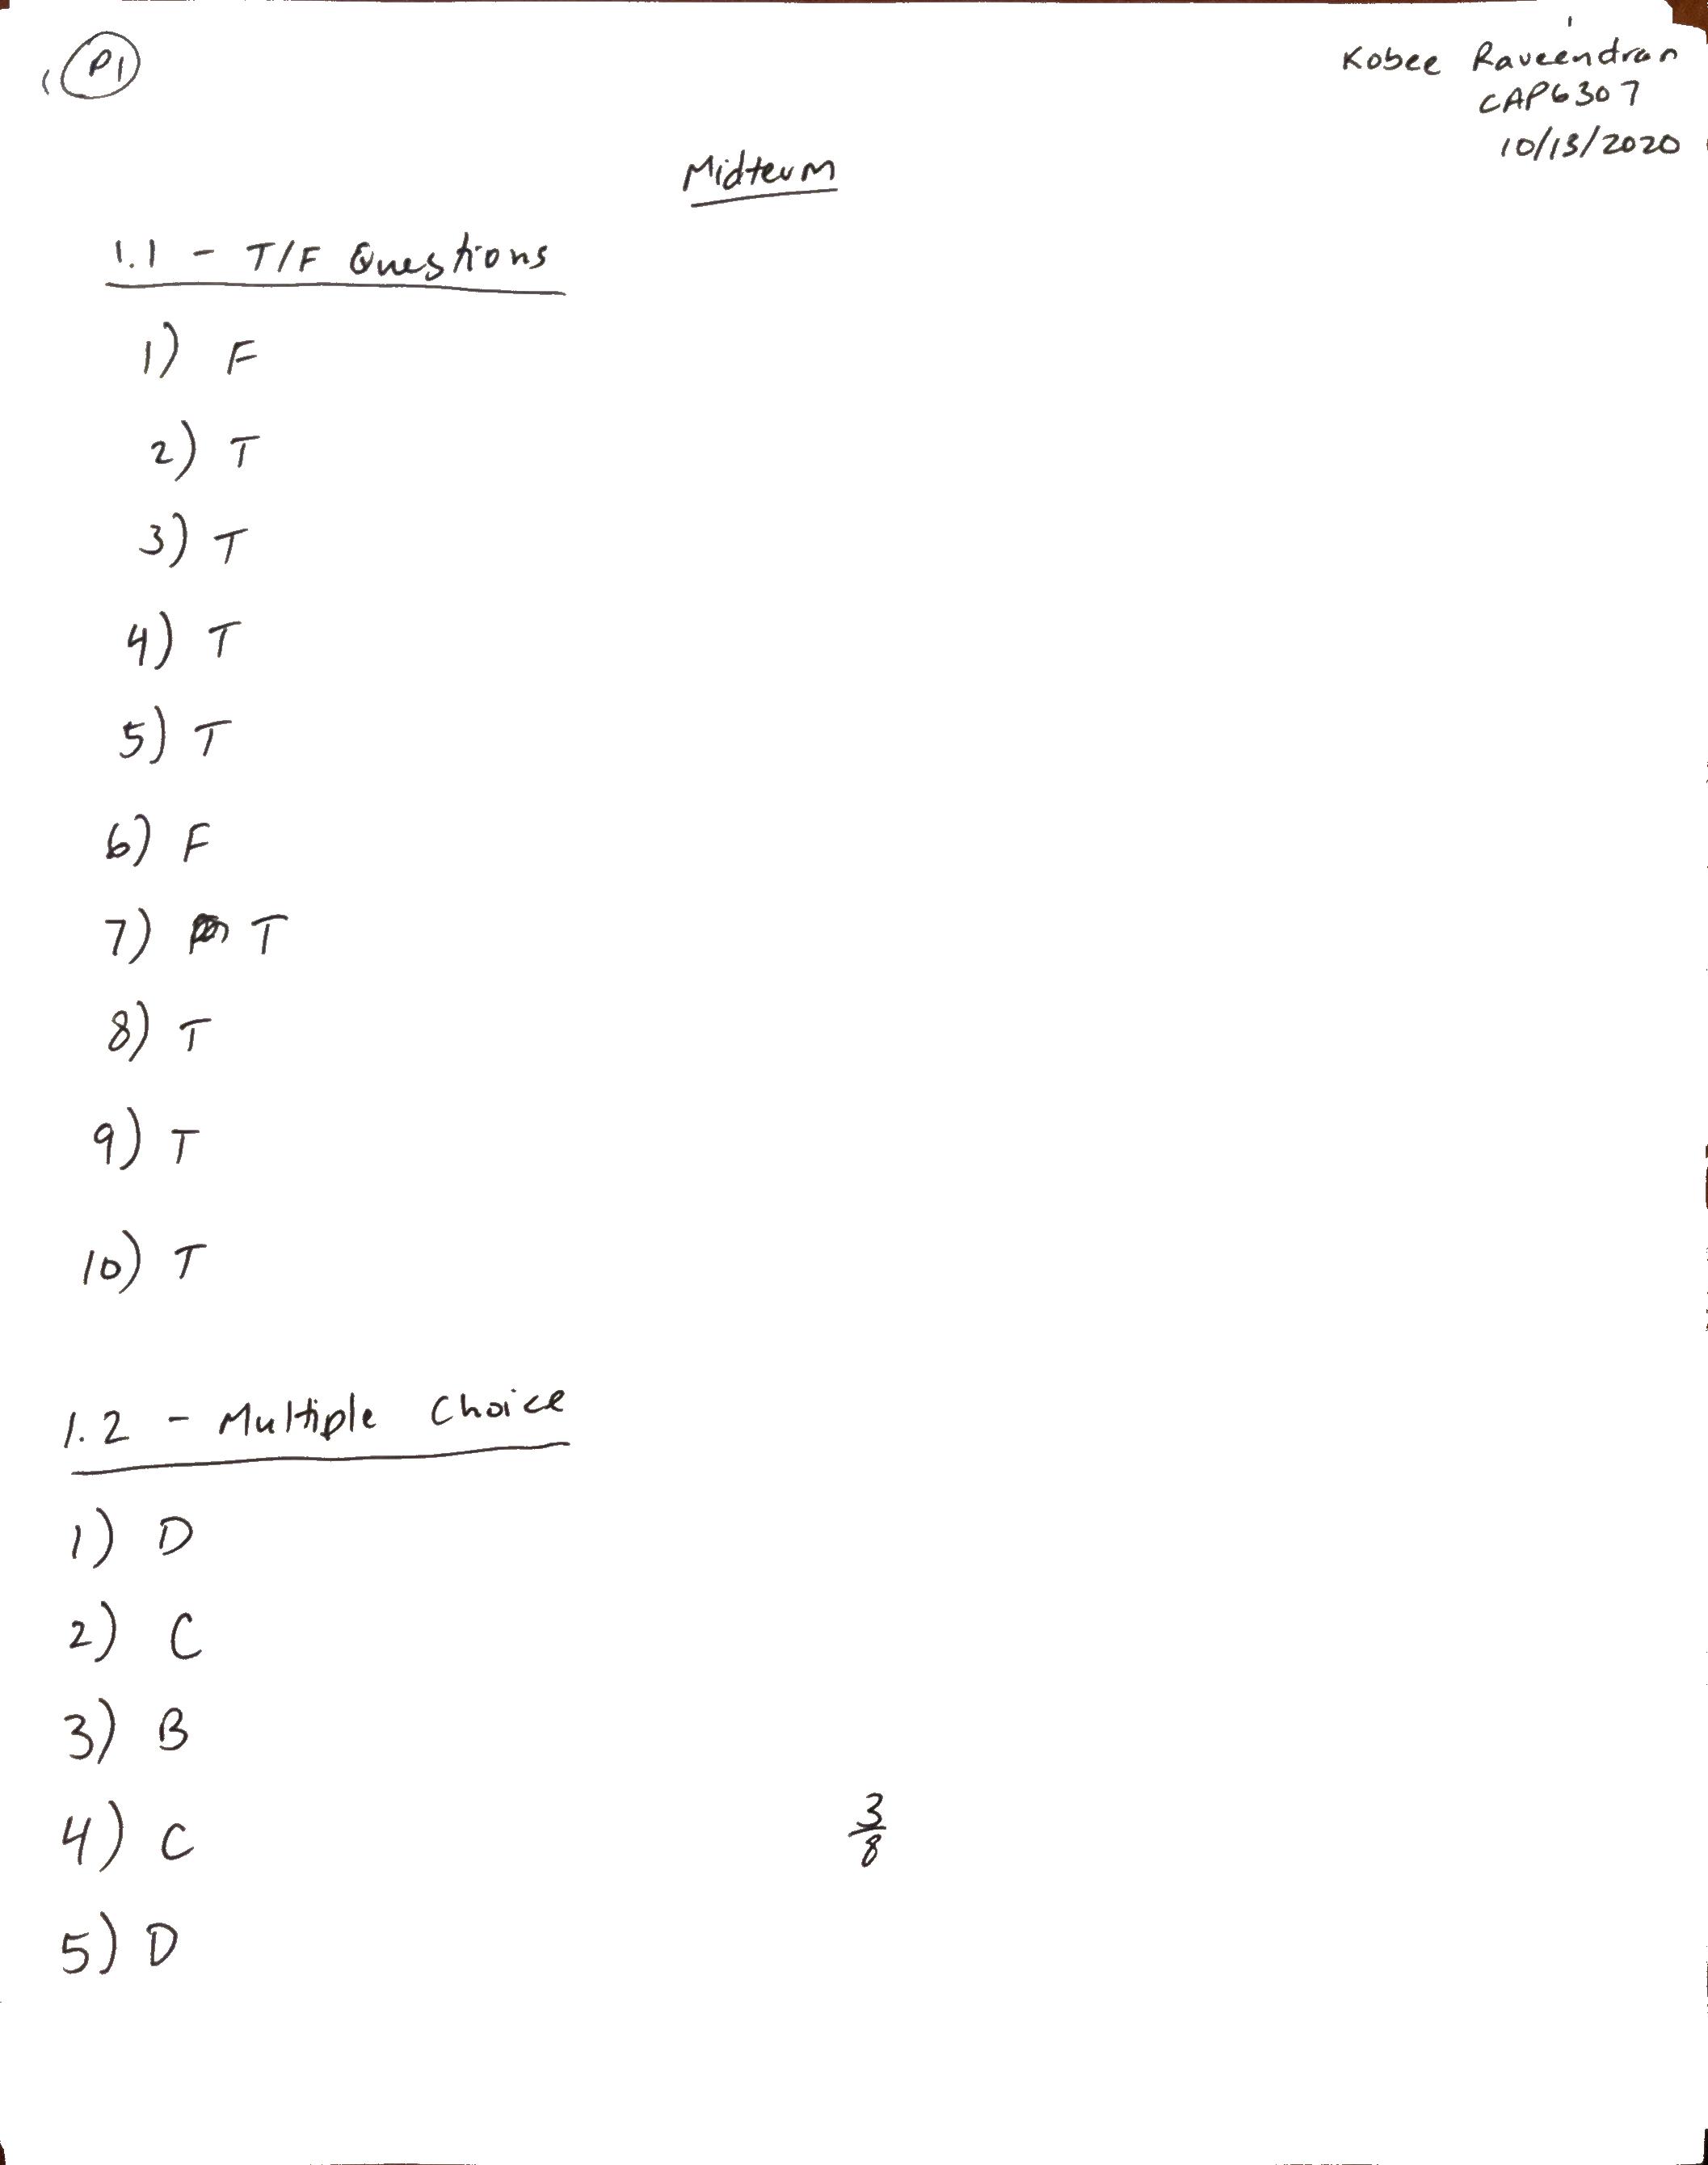 P1
Kobee Raveendran
CAP6307
10/13/2020
Midterm
1.1 - T/F Questions
1) F
2) T
3) T
4) T
5) T
6) F
7) T
8) T
9) T
10) T
1.2 - Multiple Choice
1) D
2) C
3) B
4) C
3/8
5) D